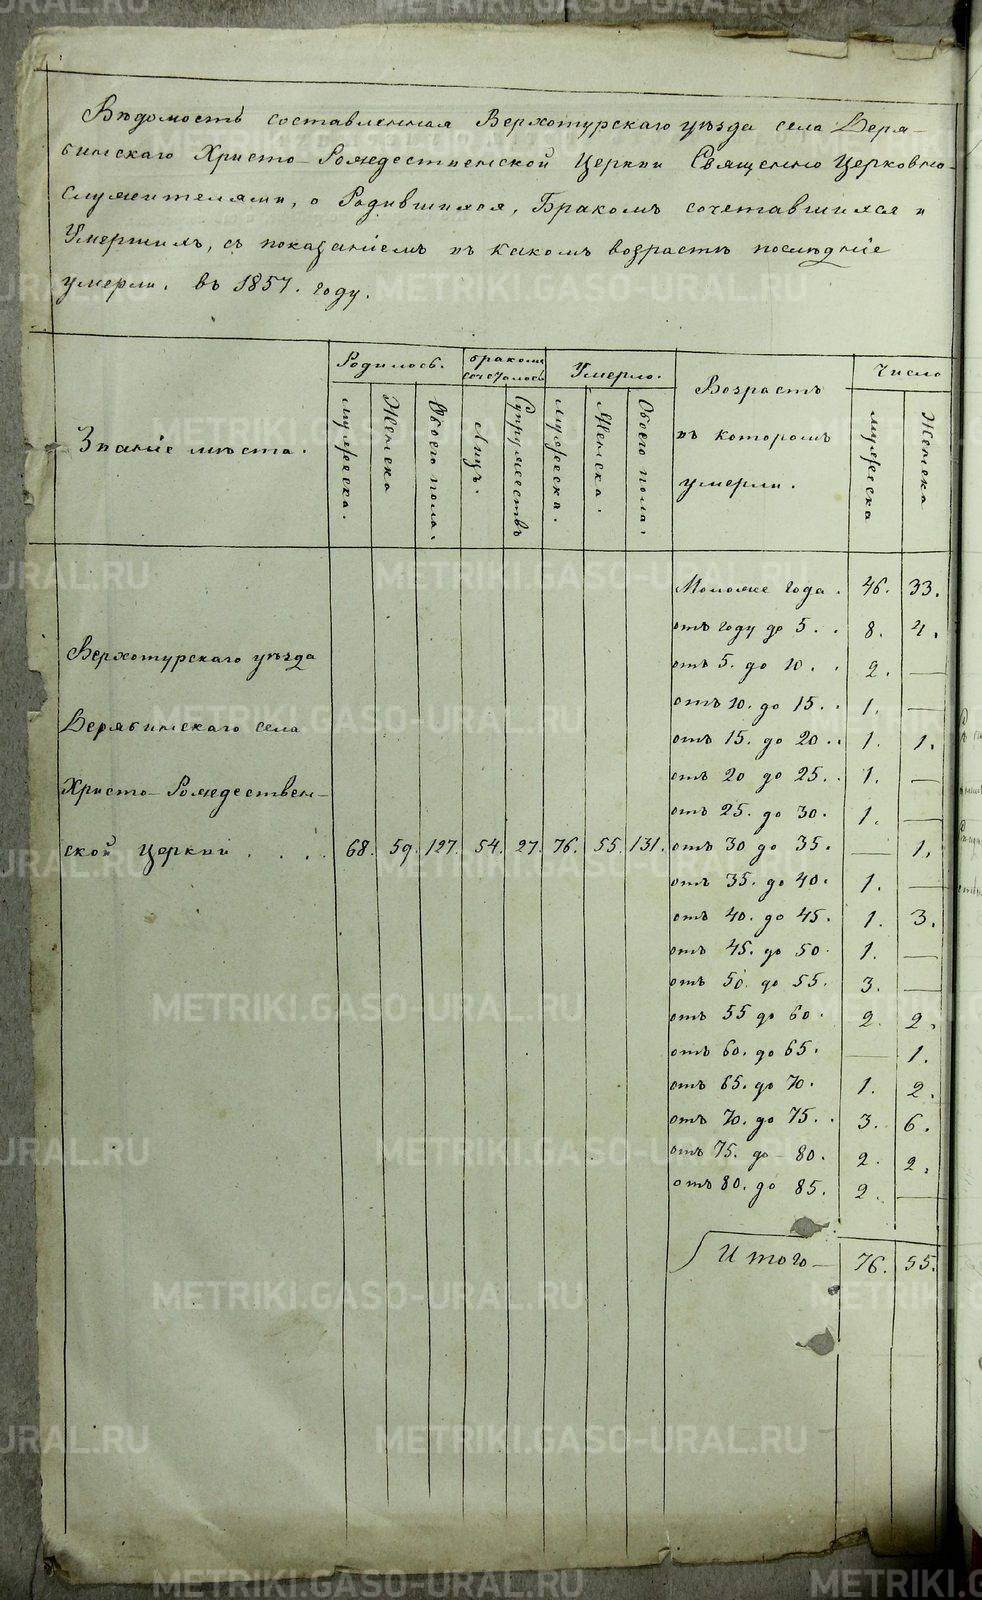 Вѣдомость составленная Верхотурскаго уѣзда села Деря-
бинскаго Христо-Рождественской Церкви Священно Церковно-
Служителями, о Родившихся, Бракомъ сочетавшихся и
Умершихъ, съ показаніемъ въ какомъ возрастѣ послѣдніе
умерли. въ 1857. году.
Званіе мѣста.
Родилось.
мужеска.
Женска
Обоего пола.
бракомъ сочеталось
Лицъ.
Супружествъ
Умерло.
мужеска.
Женска.
Обоего пола.
Возрастъ
въ которомъ
умерли.
Число
мужеска
Женска
Моложе года. 46. 33.
отъ году до 5. . 8. 4.
отъ 5. до 10. . 2. —
отъ 10. до 15. . 1. —
отъ 15. до 20. . 1. 1.
отъ 20 до 25. . 1. —
отъ 25. до 30. 1. —
отъ 30 до 35. — 1.
отъ 35. до 40. 1. —
отъ 40. до 45. 1. 3.
отъ 45. до 50 1. —
отъ 50. до 55. 3. —
отъ 55 до 60. 2. 2.
отъ 60. до 65. — 1.
отъ 65. до 70. 1. 2.
отъ 70. до 75. . 3. 6.
отъ 75. до 80. 2. 2.
отъ 80. до 85. 2. —
Итого — 76. 55.
Верхотурскаго уѣзда
Дерябинскаго села
Христо-Рождествен-
ской Церкви . . . . 68. 59. 127. 54. 27. 76. 55. 131.
METRIKI.GASO-URAL.RU